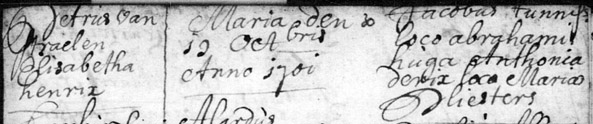 Petrus Van
Straelen
Elisabetha
henrix
Maria den
19 Octbris
Anno 1701
Jacobus tunniss
loco abrahami
huga Anthonia
derix loco Mariæ
Vliesters
Alardus